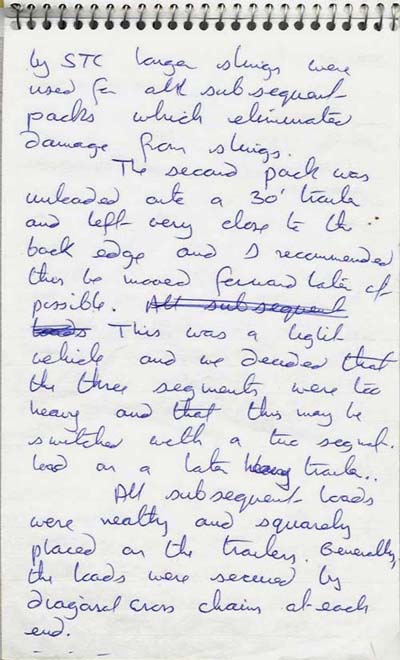 by STC larger slings were
used for all subsequent
packs which eliminated
damage from slings.
The second pack was
unloaded onto a 30' trailer
and left very close to the
back edge and I recommended
this be moved forward later if
possible. All subsequent
loads This was a light
vehicle and we decided that
the three segments were too
heavy and that this may be
switched with a two segmt.
load on a later heavy trailer..
All subsequent loads
were neatly and squarely
placed on the trailers. Generally,
the loads were secured by
diagonal cross chains at each
end.